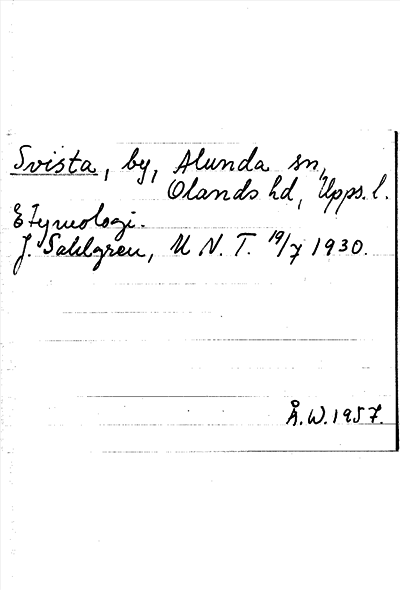 Svista, by, Alunda sn,
Olands hd, Upps. l.
Etymologi.
J. Sahlgren, U N. T. 19/7 1930.
Å. W. 1957.